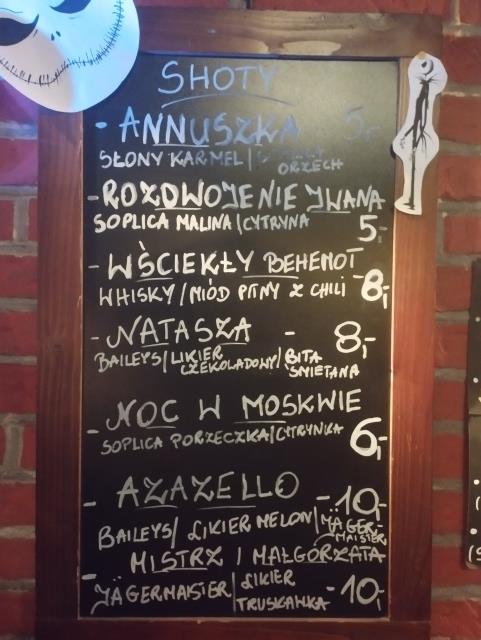 SHOTY
- ANNUSZKA 5,-
SŁONY KARMEL/ ORZECH
- ROZDWOJENIE IWANA
SOPLICA MALINA/CYTRYNA 5,-
- WŚCIEKŁY BEHEMOT
WHISKY/MIÓD PITNY Z CHILI - 8,-
- NATASZA - 8,-
BAILEYS/LIKIER CZEKOLADOWY/BITA ŚMIETANA
- NOC W MOSKWIE
SOPLICA PORZECZKA/CYTRYNKA 6,-
- AZAZELLO - 10,-
BAILEYS/ LIKIER MELON/JÄGERMAISTER
- MISTRZ I MAŁGORZATA
JÄGERMAISTER/LIKIER TRUSKAWKA - 10,-